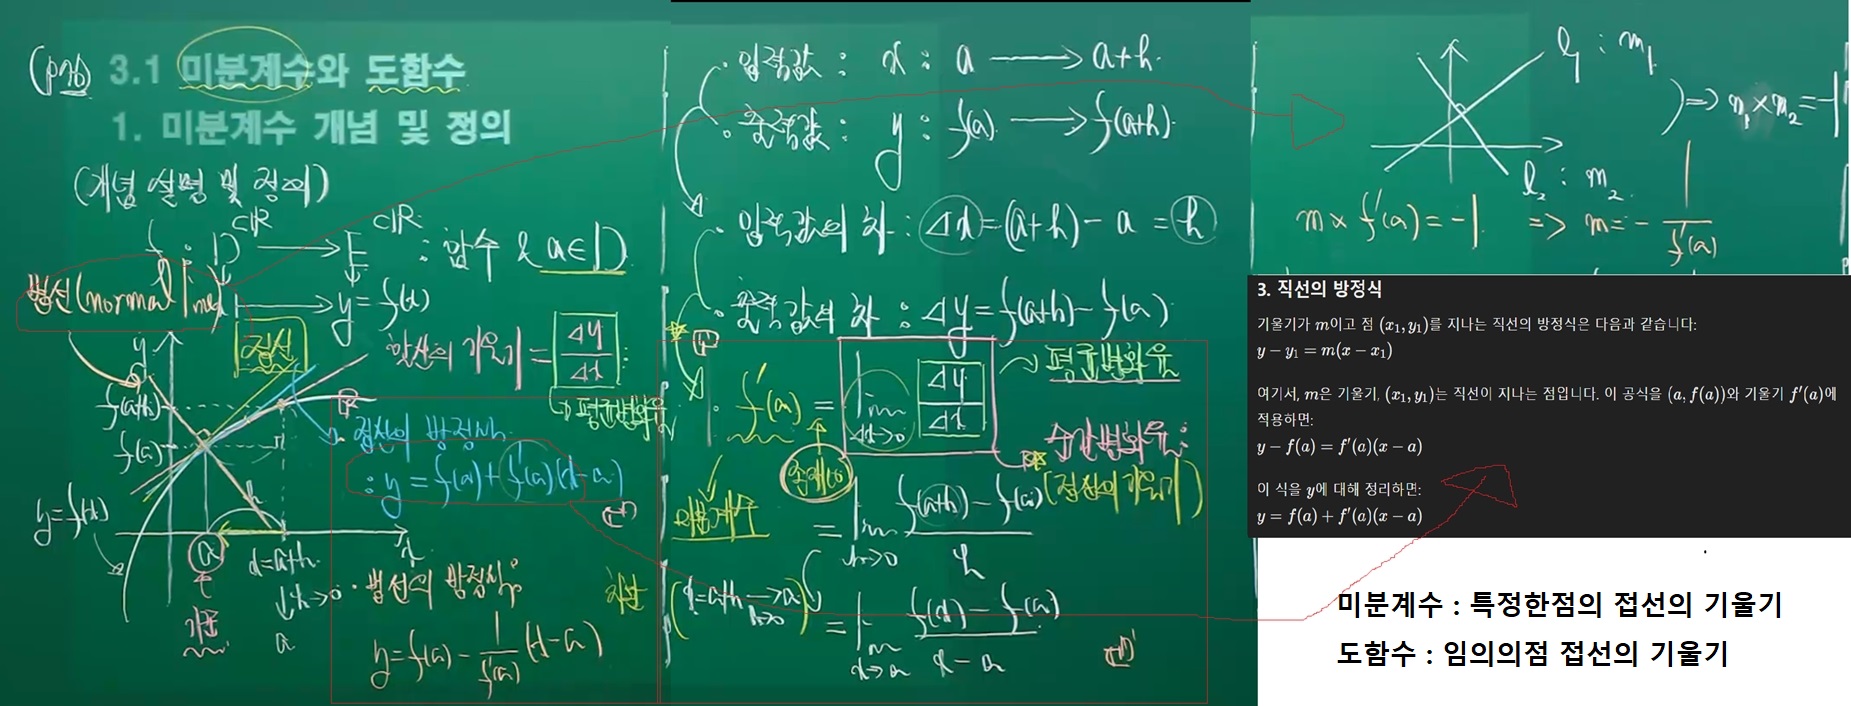 (p76) 3.1 미분계수와 도함수
1. 미분계수 개념 및 정의
(개념 설명 및 정의)
f : D ⊂ℝ → E ⊂ℝ : 함수 & a∈D
y = f(x)
법선(normal line)
접선
할선의 기울기 = Δy/Δx
↳ 평균변화율
y
f(a+h)
f(a)
y=f(x)
a
x=a+h
↓h→0
a
기준
h
x
접선의 방정식
: y = f(a) + f'(a)(x-a)
· 법선의 방정식
y = f(a) - 1/f'(a) (x-a)
· 입력값 : x : a → a+h
· 출력값 : y : f(a) → f(a+h)
· 입력값의 차 : Δx = (a+h) - a = h
· 출력값의 차 : Δy = f(a+h) - f(a)
· f'(a) = lim Δx→0 Δy/Δx
평균변화율
순간변화율
(접선의 기울기)
미분계수
= lim h→0 f(a+h) - f(a) / h
(x=a+h → a) h→0
= lim x→a f(x) - f(a) / x - a
l₁ : m₁
l₂ : m₂
⇒ m₁ × m₂ = -1
m × f'(a) = -1 ⇒ m = - 1/f'(a)
3. 직선의 방정식
기울기가 m이고 점 (x₁, y₁)를 지나는 직선의 방정식은 다음과 같습니다:
y − y₁ = m(x − x₁)
여기서, m은 기울기, (x₁, y₁)는 직선이 지나는 점입니다. 이 공식을 (a, f(a))와 기울기 f′(a)에
적용하면:
y − f(a) = f′(a)(x − a)
이 식을 y에 대해 정리하면:
y = f(a) + f′(a)(x − a)
미분계수 : 특정한점의 접선의 기울기
도함수 : 임의의점 접선의 기울기